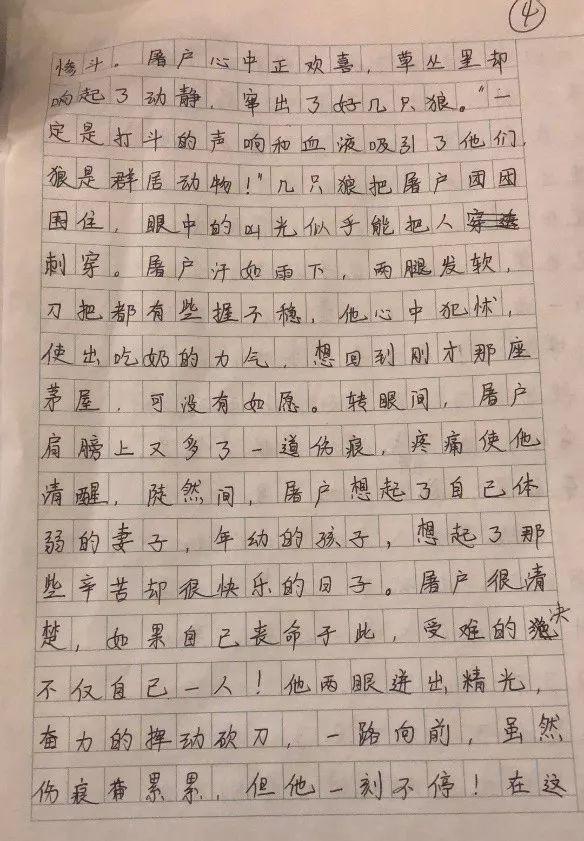 ④
惨斗。屠户心中正欢喜，草丛里却
响起了动静，窜出了好几只狼。“一
定是打斗的声响和血液吸引了他们，
狼是群居动物！”几只狼把屠户团团
围住，眼中的凶光似乎能把人
刺穿。屠户汗如雨下，两腿发软，
刀把都有些握不稳，他心中犯怵，
使出吃奶的力气，想回到刚才那座
茅屋，可没有如愿。转眼间，屠户
肩膀上又多了一道伤痕，疼痛使他
清醒，陡然间，屠户想起了自己体
弱的妻子，年幼的孩子，想起了那
些辛苦却很快乐的日子。屠户很清
楚，如果自己丧命于此，受难的决
不仅自己一人！他两眼迸出精光，
奋力的挥动砍刀，一路向前，虽然
伤痕累累，但他一刻不停！在这